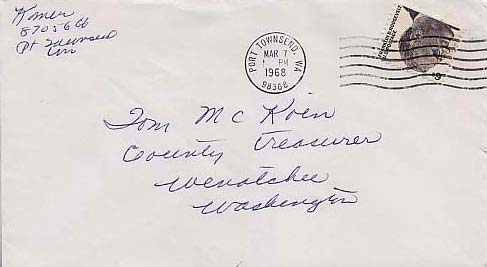 Komer
870 S 6 th
Pt Townsend
Wn
PORT TOWNSEND, WA
MAR 7
PM
1968
98368
FRANKLIN D. ROOSEVELT
U.S. POSTAGE
Tom Mc Koin
County Treasurer
Wenatchee
Washington